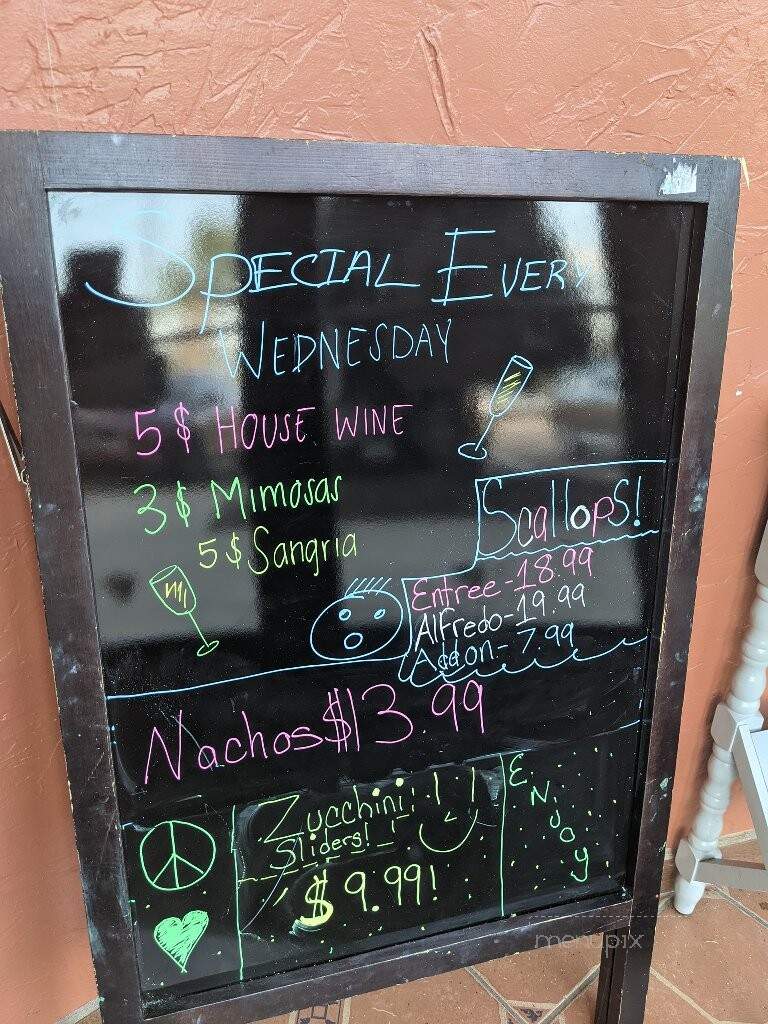 SPECIAL EVERY
WEDNESDAY
5$ HOUSE WINE
3$ Mimosas
5$ Sangria
Scallops!
Entree-18.99
Alfredo-19.99
Add on-7.99
Nachos $13.99
Zucchini!!!
Sliders!
$9.99!
ENJOY
menupix